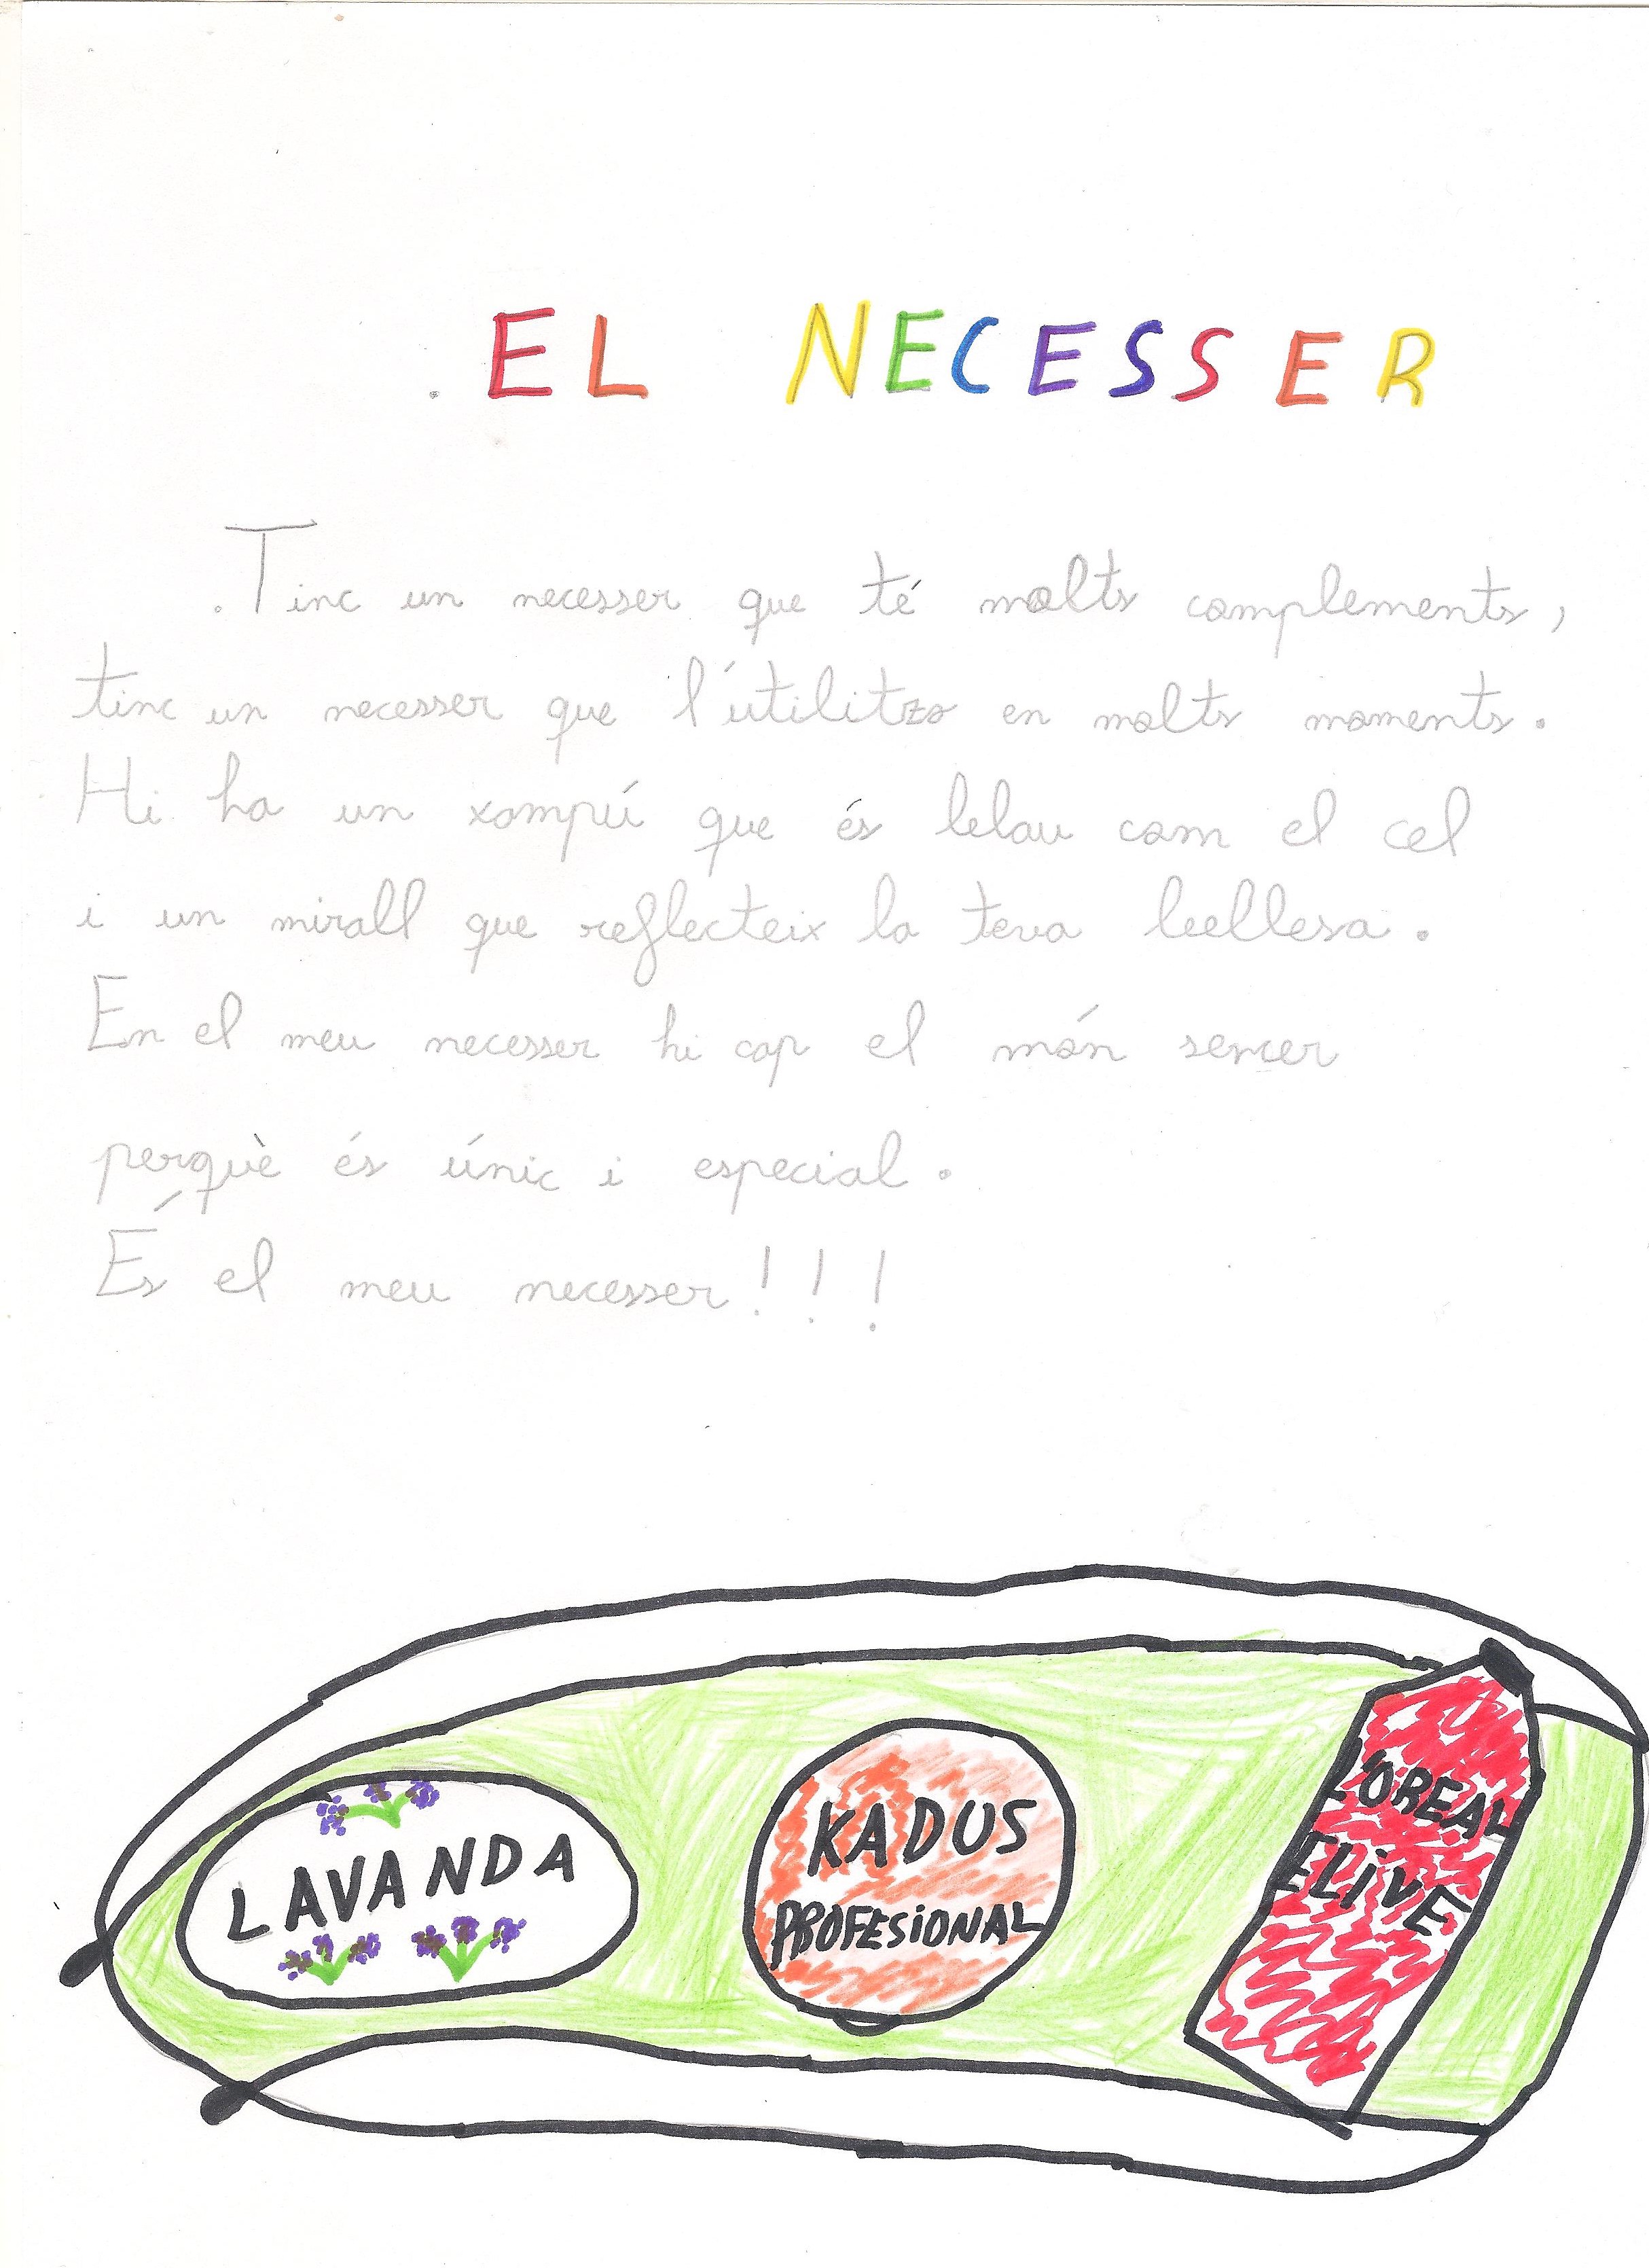 . EL NECESSER
. Tinc un necesser que té molts complements,
tinc un necesser que l'utilitzo en molts moments.
Hi ha un xampú que és blau com el cel
i un mirall que reflecteix la teva bellesa.
En el meu necesser hi cap el món sencer
perquè és únic i especial.
És el meu necesser!!!
LAVANDA
KADUS
PROFESIONAL
L'OREAL
ELIVE